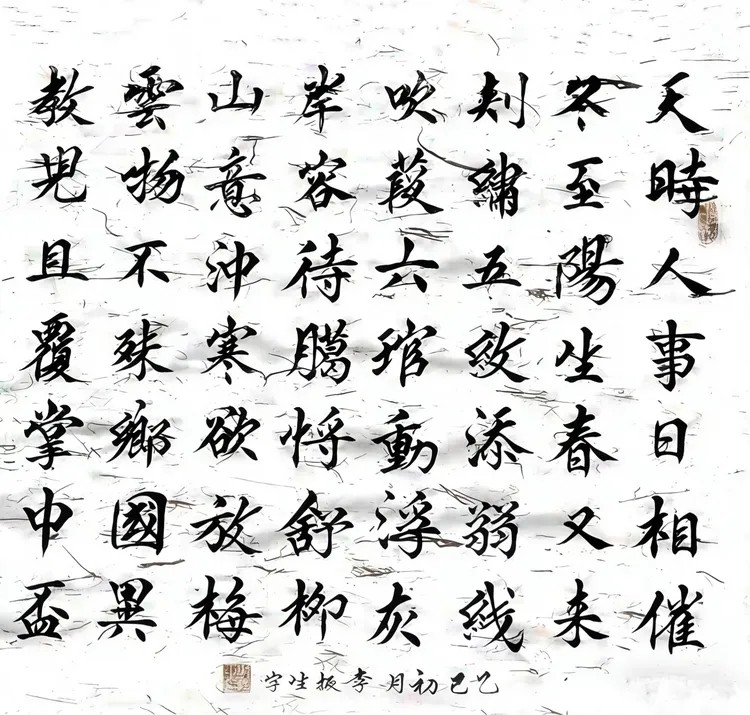 天時人事日相催
冬至陽生春又来
刺繡五紋添弱线
吹葭六琯動浮灰
岸容待臈將舒柳
山意沖寒欲放梅
雲物不殊鄉國異
教児且覆掌中盃
乙巳初月李振生字